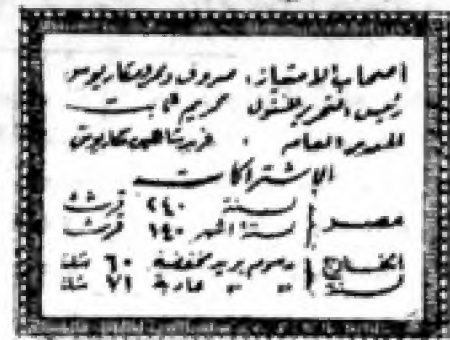 أصحاب الامتياز: صروف ونمر ومكاريوس
رئيس التحرير المسئول كريم ثابت
المدير العام : فريد شاهين مكاريوس
الاشتراكات
مصر { لسنة ٢٤٠ قرشا
لستة اشهر ١٤٠ قرشا
الخارج لسنة { برسوم بريد مخفضة ٦٠ شلنا
" " عادية ٧١ شلنا